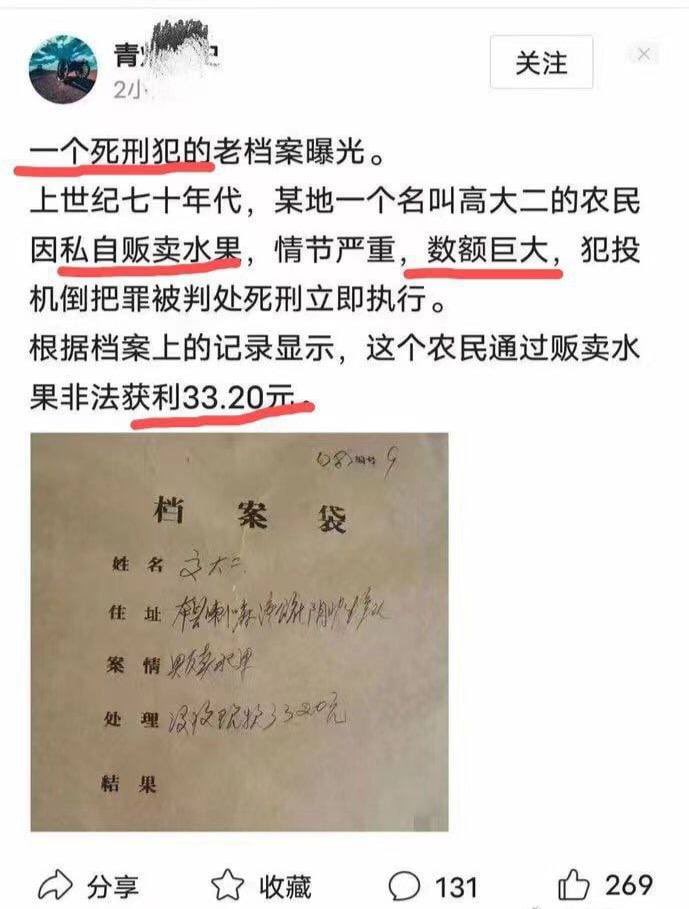 青
关注
2小
一个死刑犯的老档案曝光。
上世纪七十年代，某地一个名叫高大二的农民
因私自贩卖水果，情节严重，数额巨大，犯投
机倒把罪被判处死刑立即执行。
根据档案上的记录显示，这个农民通过贩卖水
果非法获利33.20元。
编号 9
档案袋
姓名 大二
住址
案情 贩卖水果
处理 没收现款33.20元
结果
分享 收藏 131 269